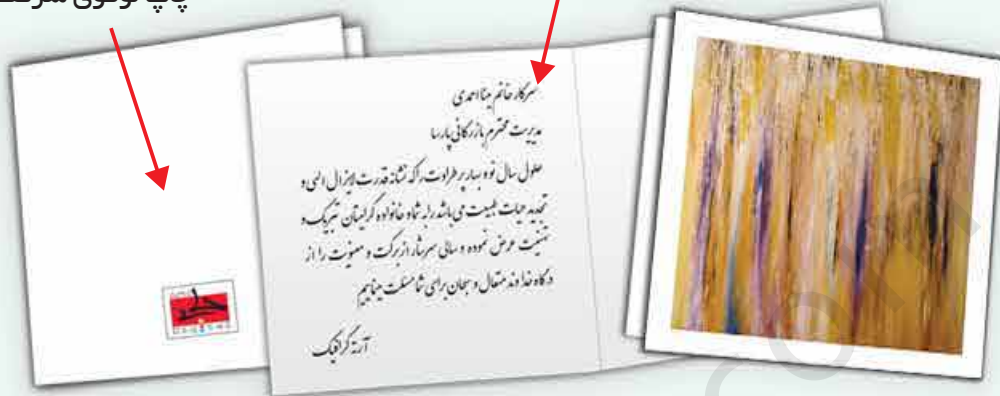 چاپ لوگوی
سرکار خانم مینا احمدی
مدیریت محترم بازرگانی پارسا
حلول سال نو و بهار پر طراوت را که نشانه قدرت لایزال الهی و
تجدید حیات طبیعت می باشد را به شما و خانواده گرامیتان تبریک و
تهنیت عرض نموده و سالی سرشار از برکت و معنویت را از
درگاه خداوند متعال و سبحان برای شما مسئلت مینماییم
گرافیک
com